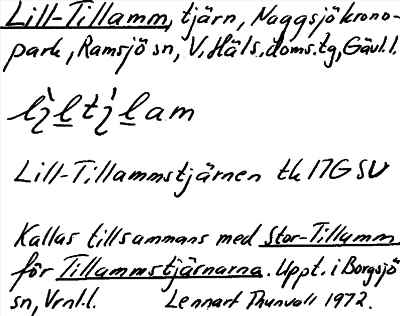 Lill-Tillamm, tjärn, Naggsjökrono-
park, Ramsjö sn, V. Häls. doms. tg, Gävl. l.
Lill-Tillammstjärnen tk 17G SV
Kallas tillsammans med Stor-Tillamm
för Tillammstjärnarna. Uppt. i Borgsjö
sn, Vrnl. l. Lennart Thunvall 1972.